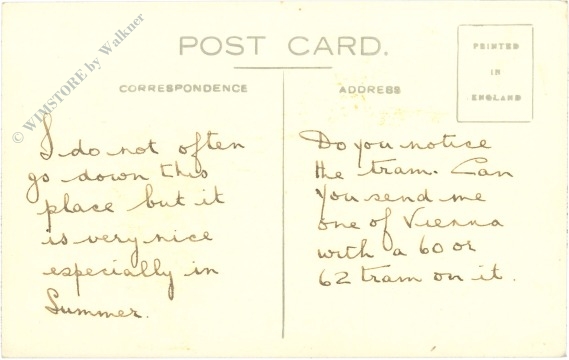 © WIMSTORE by Walkner
POST CARD.
PRINTED
IN
ENGLAND
CORRESPONDENCE
ADDRESS
I do not often
go down this
place but it
is very nice
especially in
Summer.
Do you notice
the tram. Can
you send me
one of Vienna
with a 60 or
62 tram on it.